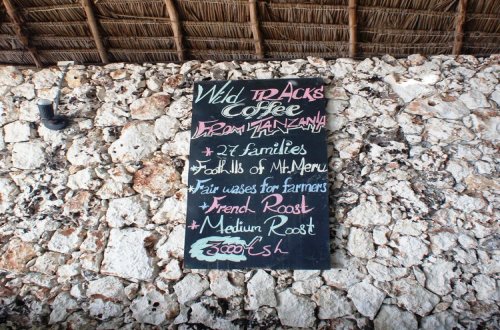 Wild TRACKS
Coffee
FROM TANZANIA
* 27 families
* Foothills of Mt. Meru
* Fair wases for farmers
* Frend Roast
* Medium Roast
3000 tsh